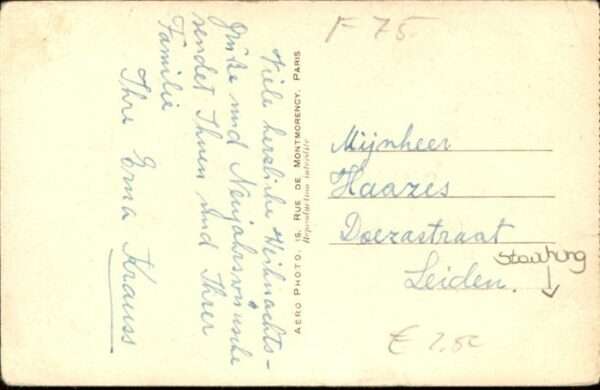 F 75
Viele herzliche Weihnachts-
Grüße und Neujahrswünsche
sendet Ihnen und Ihrer
Familie
Ihre Erna Krauss
AERO PHOTO, 15, RUE DE MONTMORENCY, PARIS
Reproduction interdite
Mijnheer
Haazes
Doezastraat
Leiden.
€ 2.50